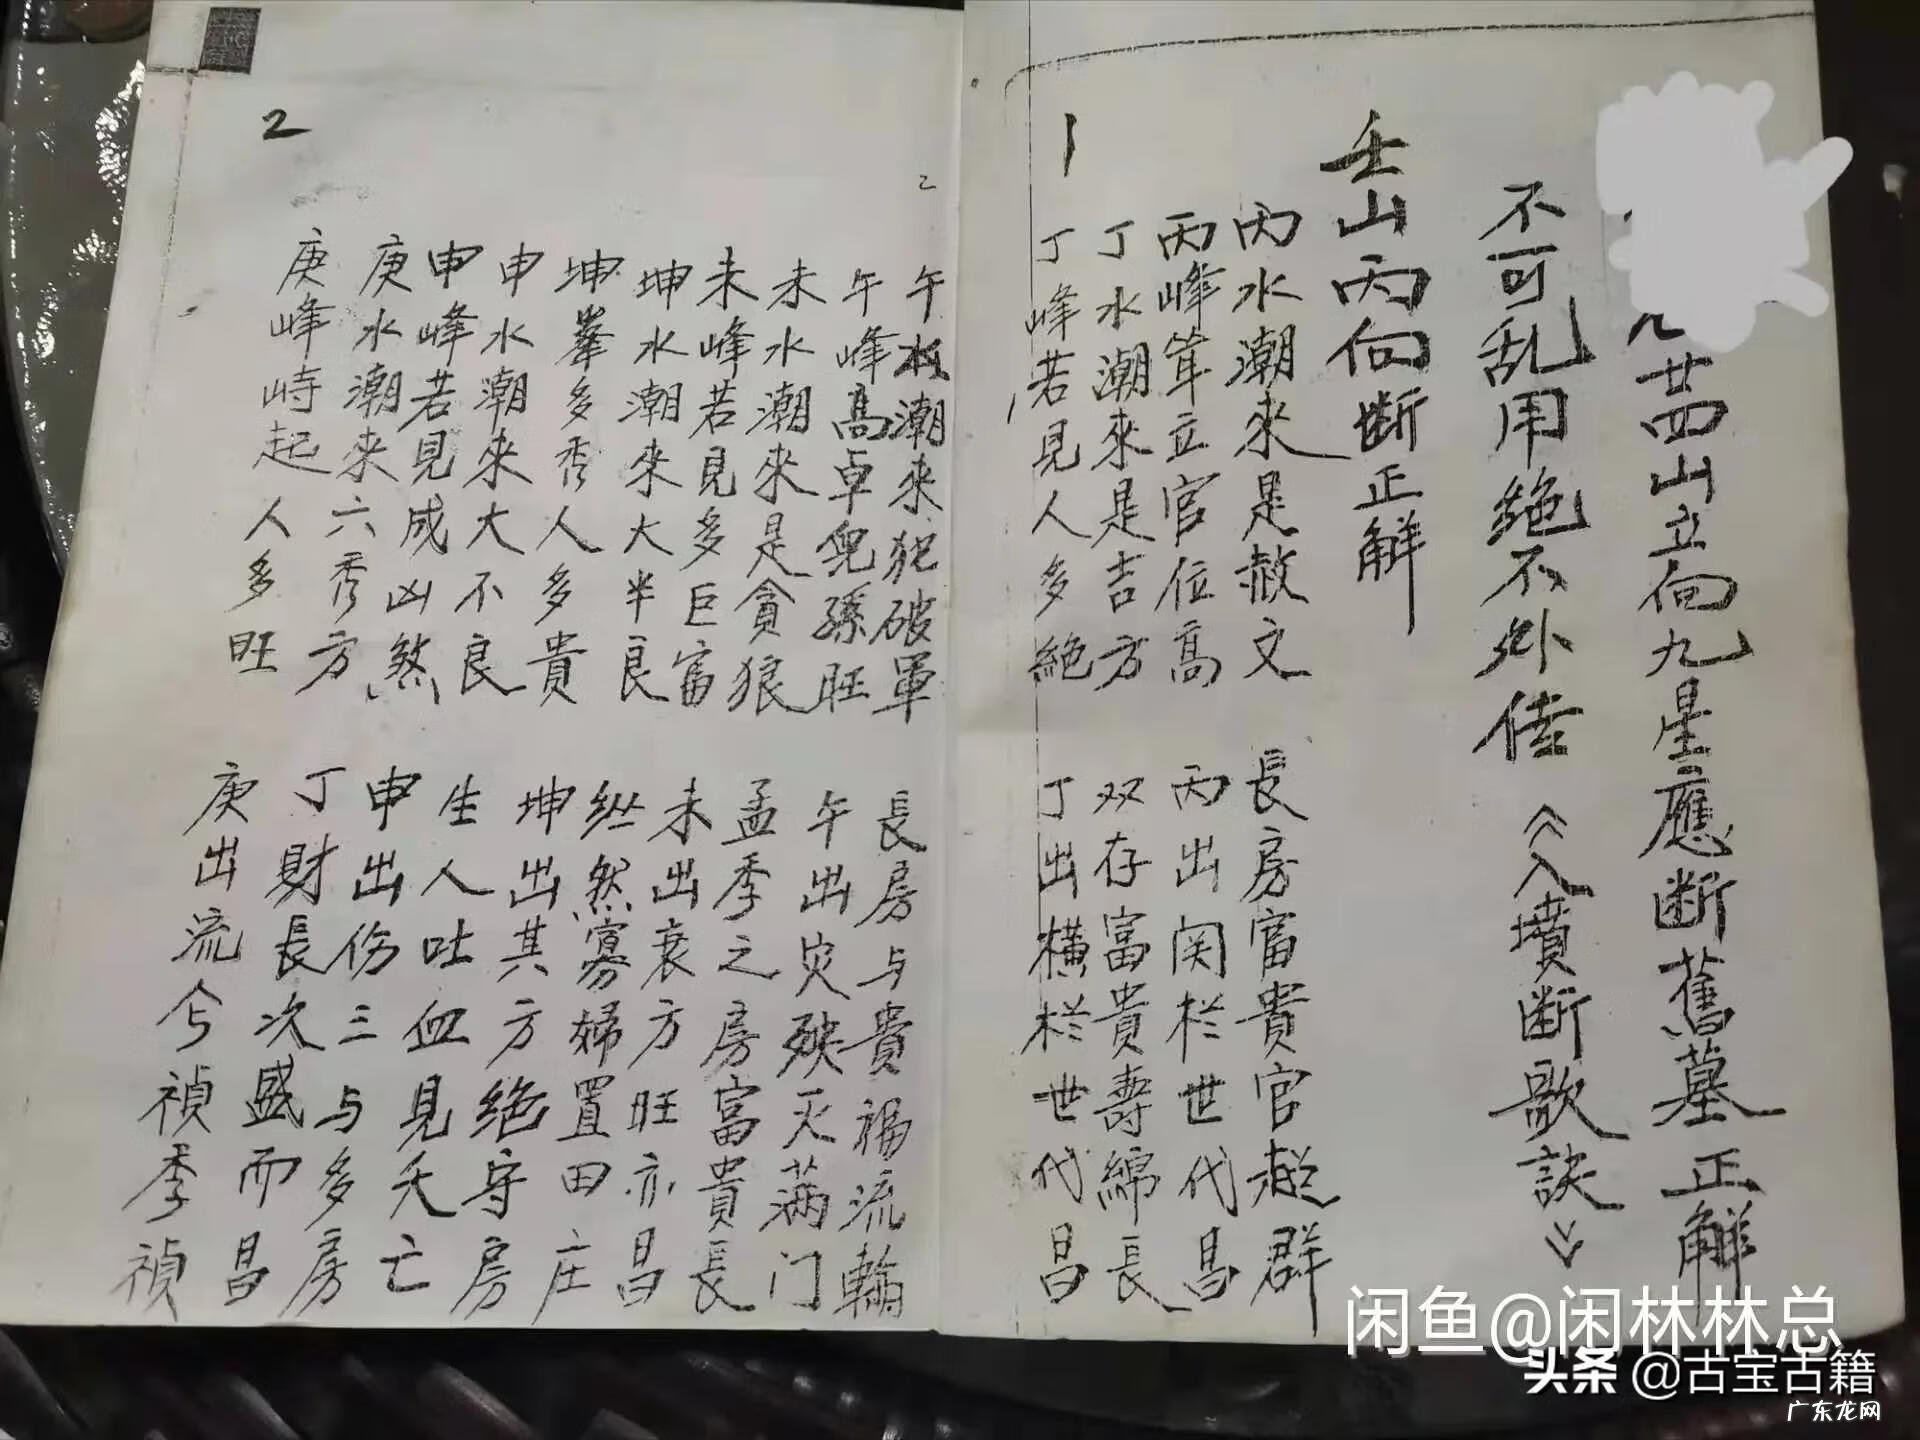 九廿四山立向九星應断舊墓正解
不可乱用绝不外传《入墳断歌訣》
壬山丙向断正解
丙水潮來是赦文 長房富貴官超群
丙峰耸立官位高 丙出関栏世代昌
丁水潮來是吉方 双存富貴壽綿長
丁峰若見人多絕 丁出横栏世代昌
1
2
午水潮來犯破軍 長房与貴福流輪
午峰高卓兒孫旺 午出災殃灭满门
未水潮來是貪狼 孟季之房富貴長
未峰若見多巨富 未出衰方旺亦昌
坤水潮來大半良 纵然寡婦置田庄
坤峯多秀人多貴 坤出其方绝守房
申水潮來大不良 生人吐血見夭亡
申峰若見成凶煞 申出伤三与多房
庚水潮来六秀方 丁財長次盛而昌
庚峰峙起人多旺 庚出流兮禎季禎
2
闲鱼@闲林林总
头条@古宝古籍
广东龙网